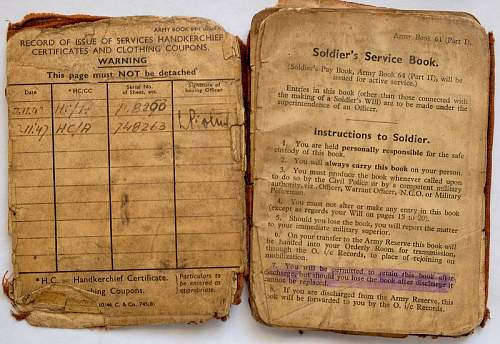 ARMY BOOK
RECORD OF ISSUE OF SERVICES HANDKERCHIEF
CERTIFICATES AND CLOTHING COUPONS.
WARNING
This page must NOT be detached
Date
*HC/CC
Serial No.
of Sheet, etc.
Signature of
Issuing Officer
HC/A
HC/A 748263
*H.C. = Handkerchief Certificate.
Coupons.
Particulars to
be entered as
appropriate.
Army Book 64 (Part I).
Soldier's Service Book.
(Soldier's Pay Book, Army Book 64 (Part II), will be
issued for active service.)
Entries in this book (other than those connected with
the making of a Soldier's Will) are to be made under the
superintendence of an Officer.
Instructions to Soldier.
1. You are held personally responsible for the safe
custody of this book.
2. You will always carry this book on your person.
3. You must produce the book whenever called upon
to do so by the Civil Police or by a competent military
authority, viz., Officer, Warrant Officer, N.C.O. or Military
Policeman.
4. You must not alter or make any entry in this book
(except as regards your Will on pages 15 to 20).
5. Should you lose the book, you will report the matter
to your immediate military superior.
6. On your transfer to the Army Reserve this book will
be handed into your Orderly Room for transmission,
through the O. i/c Records, to place of rejoining on
mobilization.
7. You will be permitted to retain this book after
discharge, but should you lose the book after discharge it
cannot be replaced.
8. If you are discharged from the Army Reserve, this
book will be forwarded to you by the O. i/c Records.